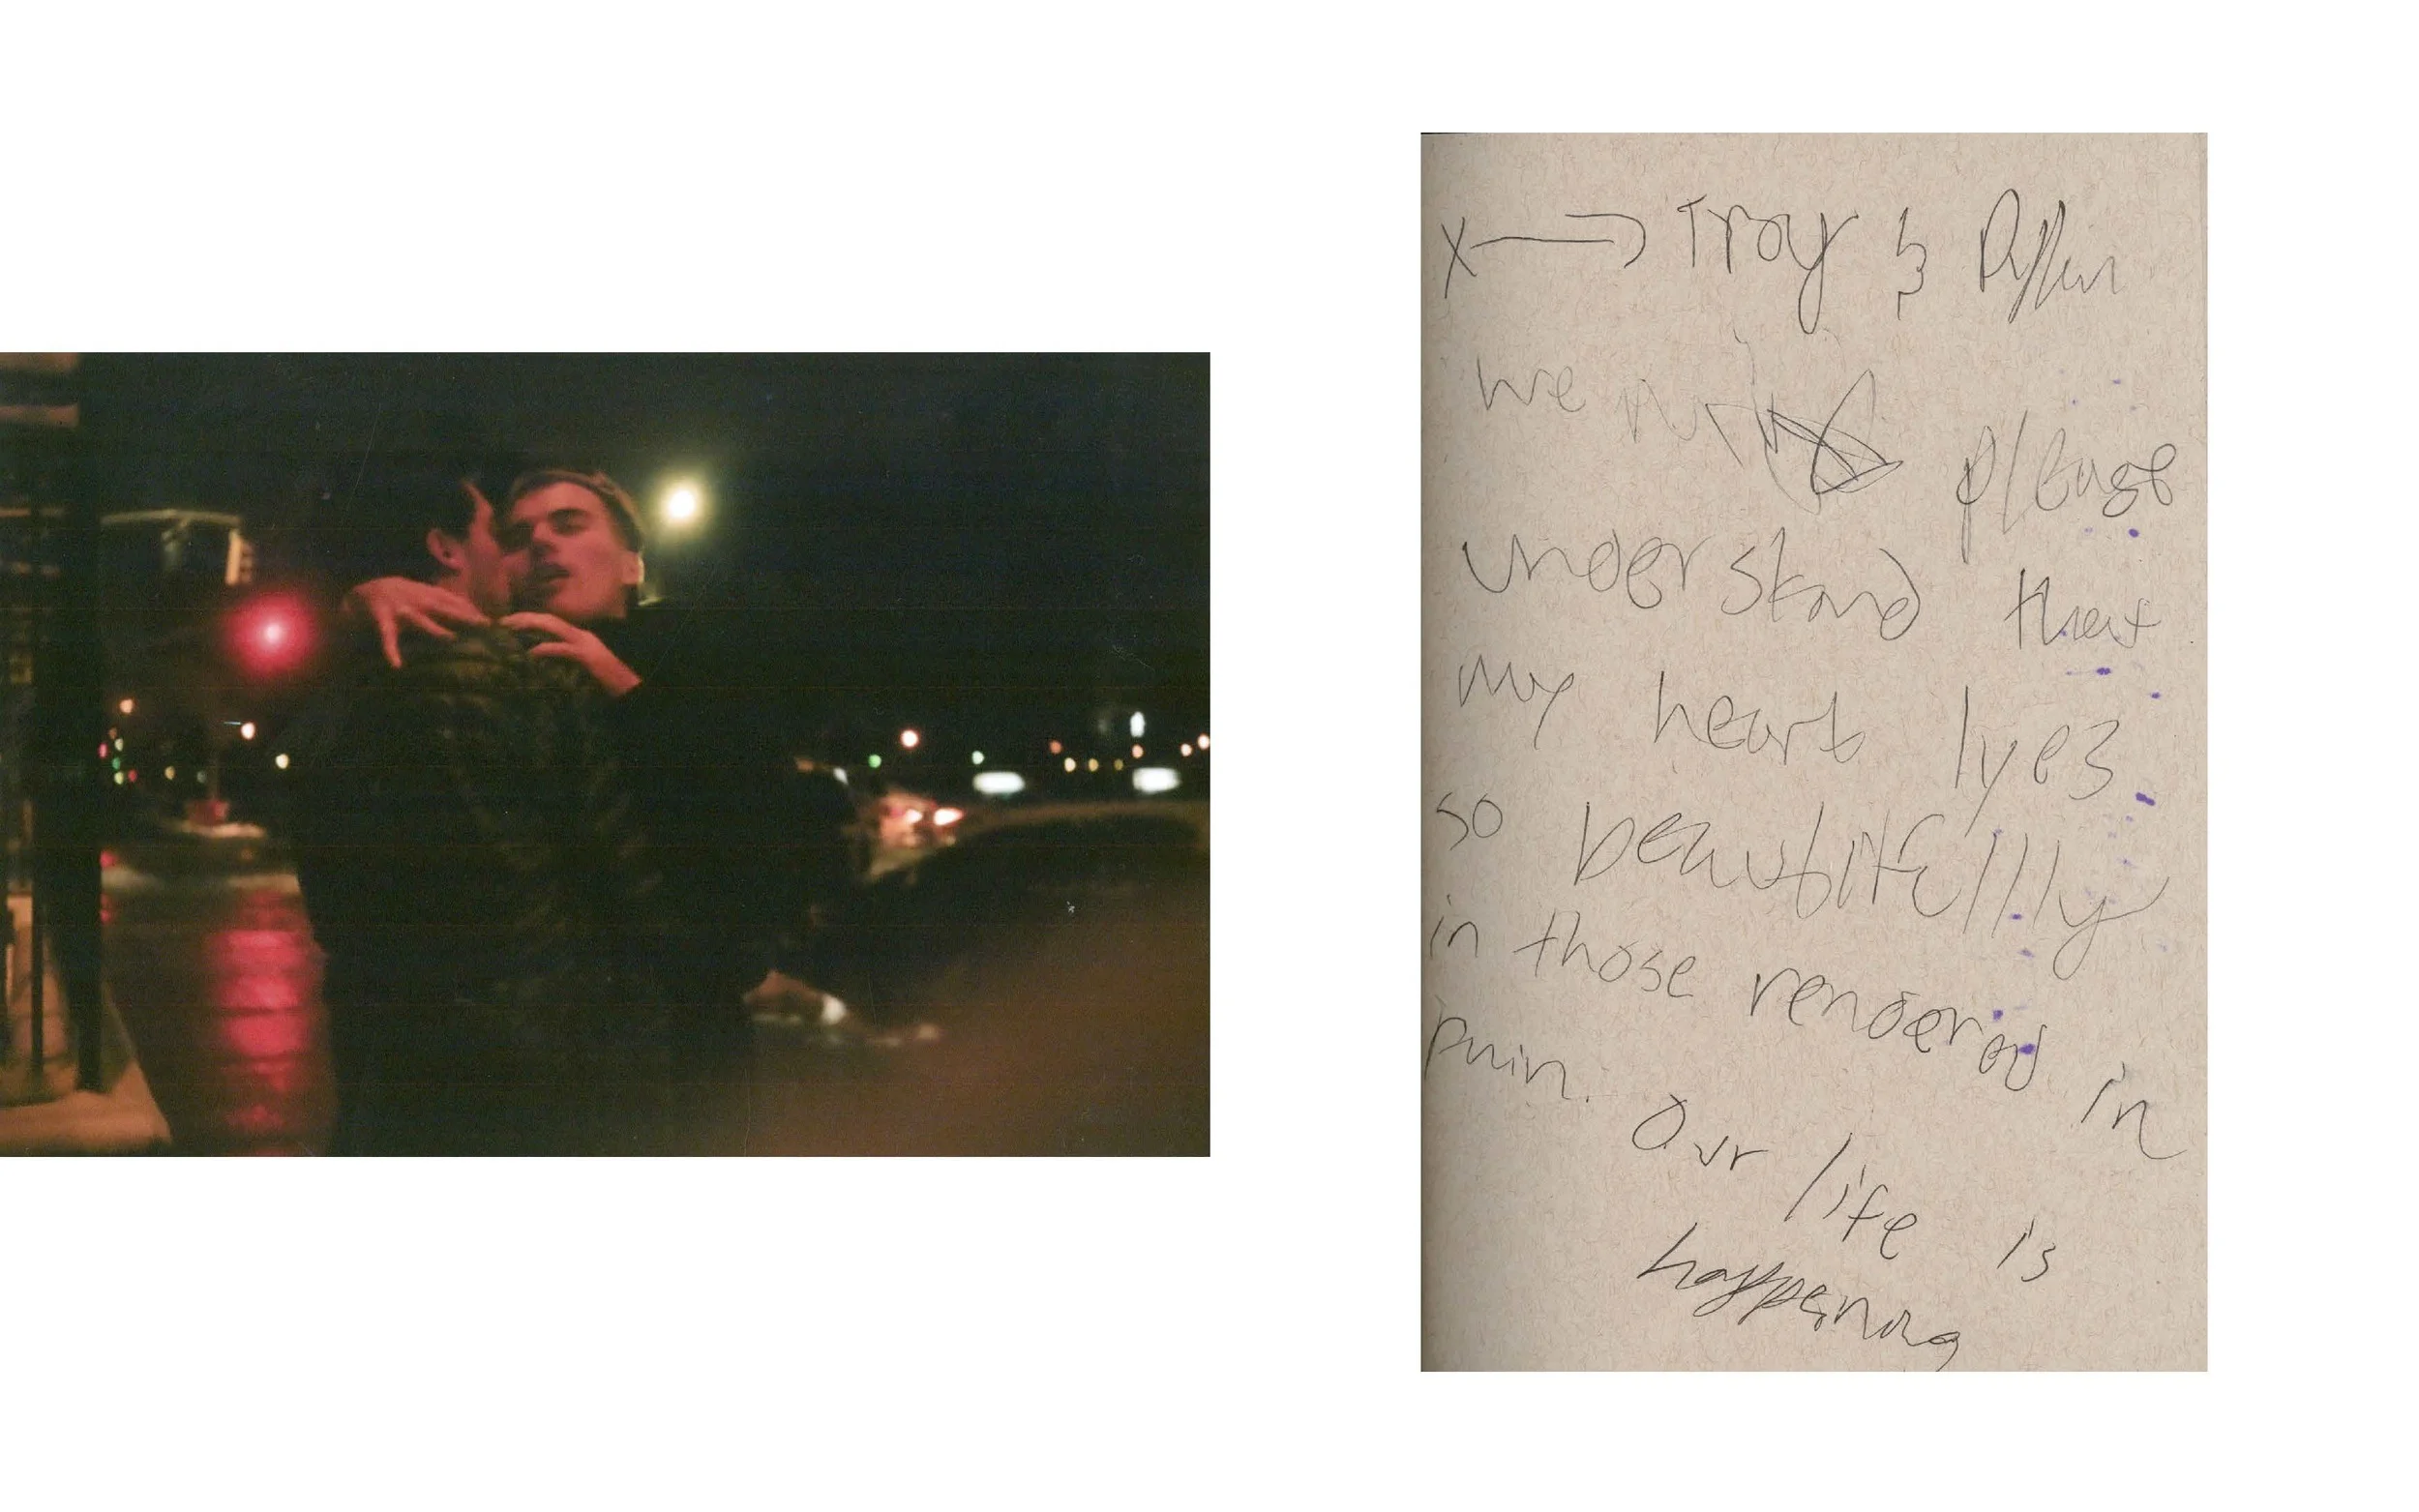 x → Troy & Dyllan
we please
understand that
my heart lyes
so beautifully
in those rendered in
pain. Our life is
happening